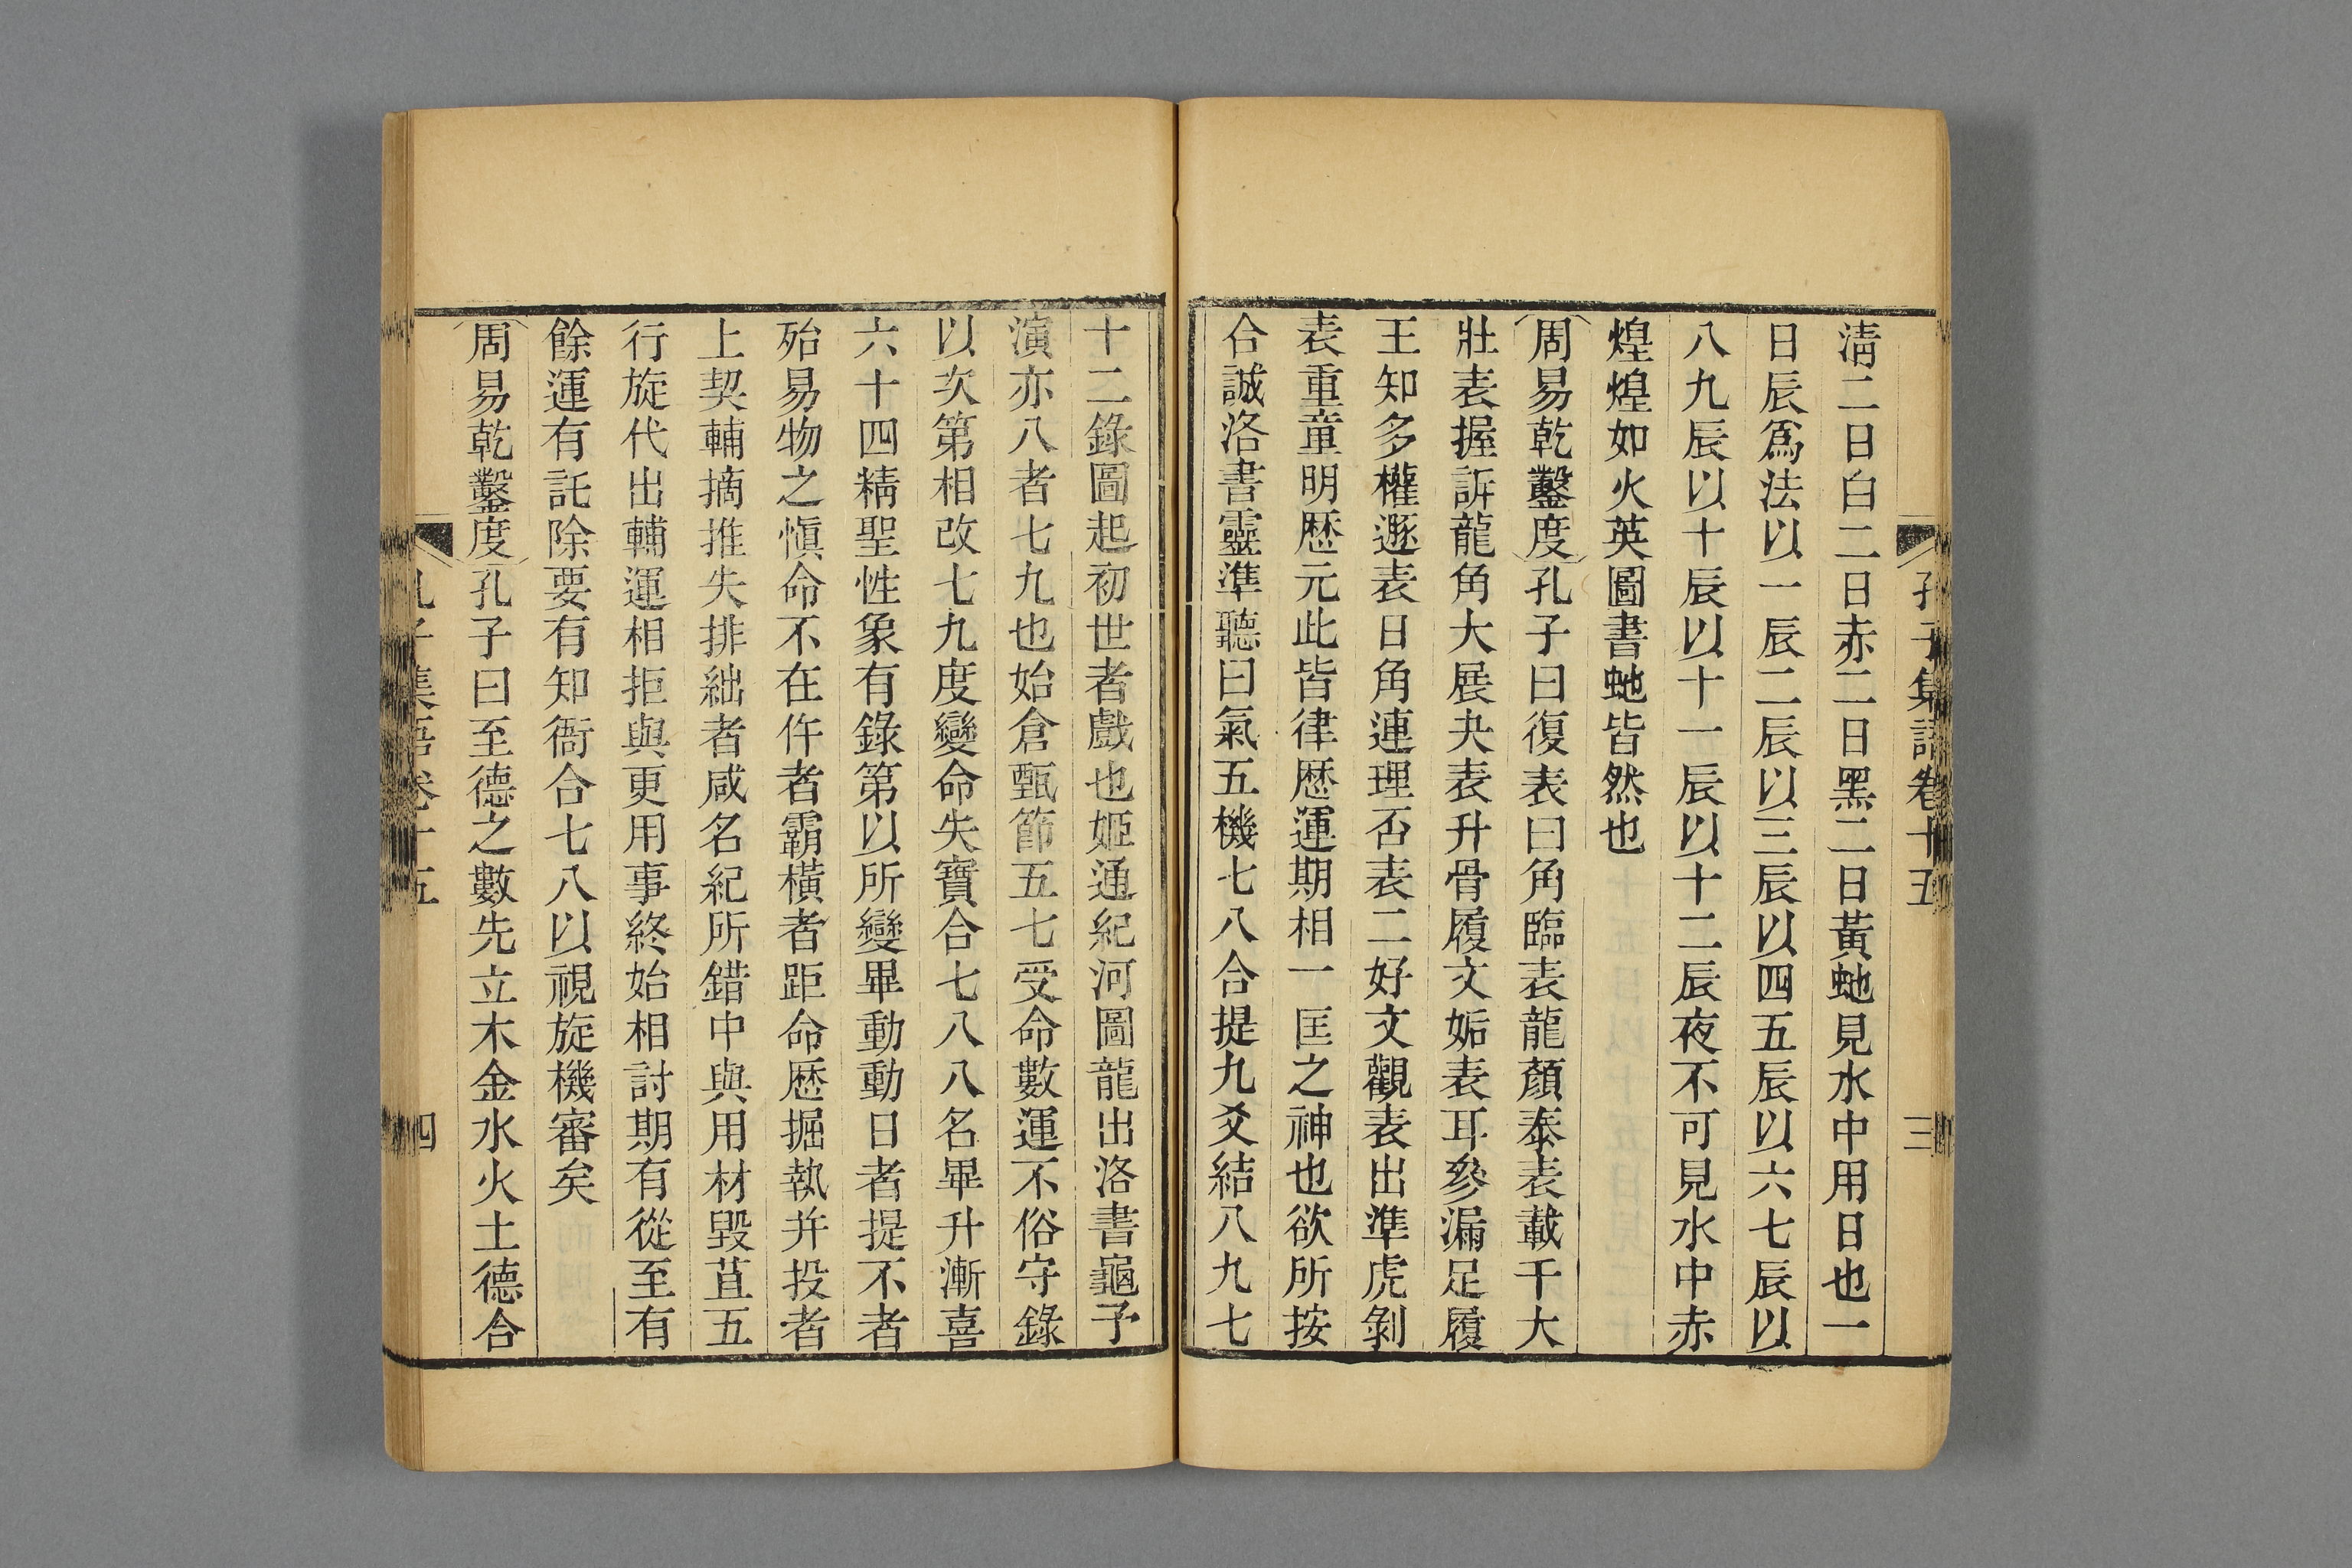 孔子集語卷十五 三
清二日白二日赤二日黑二日黃虵見水中用日也一
日辰爲法以一辰二辰以三辰以四五辰以六七辰以
八九辰以十辰以十一辰以十二辰夜不可見水中赤
煌煌如火英圖書虵皆然也
周易乾鑿度孔子曰復表曰角臨表龍顏泰表載干大
壯表握訴龍角大展夬表升骨履文姤表耳參漏足履
王知多權遯表日角連理否表二好文觀表出準虎剝
表重童明歷元此皆律歷運期相一匡之神也欲所按
合誠洛書靈準聽曰氣五機七八合提九爻結八九七
十二錄圖起初世者戲也姬通紀河圖龍出洛書龜予
演亦八者七九也始倉甄節五七受命數運不俗守錄
以次第相改七九度變命失寶合七八八名畢升漸喜
六十四精聖性象有錄第以所變畢動動日者提不者
殆易物之慎命不在仵者霸橫者距命歷掘執并投者
上契輔摘推失排絀者咸名紀所錯中與用材毀苴五
行旋代出輔運相拒與更用事終始相討期有從至有
餘運有託除要有知衙合七八以視旋機審矣
周易乾鑿度孔子曰至德之數先立木金水火土德合
孔子集語卷十五 四